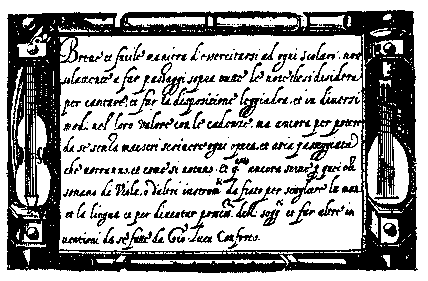 Breve et facile maniera d'essercitarsi ad ogni scolaro, non
solamente a far passaggi sopra tutte le note che si desidera
per cantare, et far la dispositione leggiadra, et in diversi
modi nel loro valore con le cadenze, ma ancora per potere
da se senza maestri scrivere ogni opera, et aria passeggiata
che vorranno, et come si notano, et qsto ancora serve p quei che
sonano di Viola, o d'altri instromti da fiato per sciogliere la mano
et la lingua et per diventar delli sogg et far altre in
ventioni da se fatte da Gio. Luca Conforto.